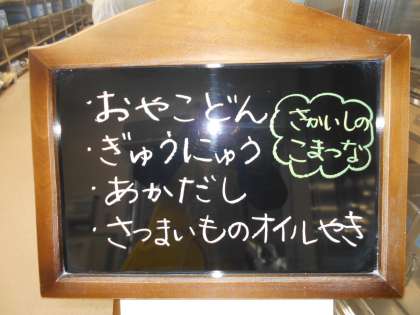 ・おやこどん
・ぎゅうにゅう
・あかだし
・さつまいものオイルやき
さかいしの
こまつな